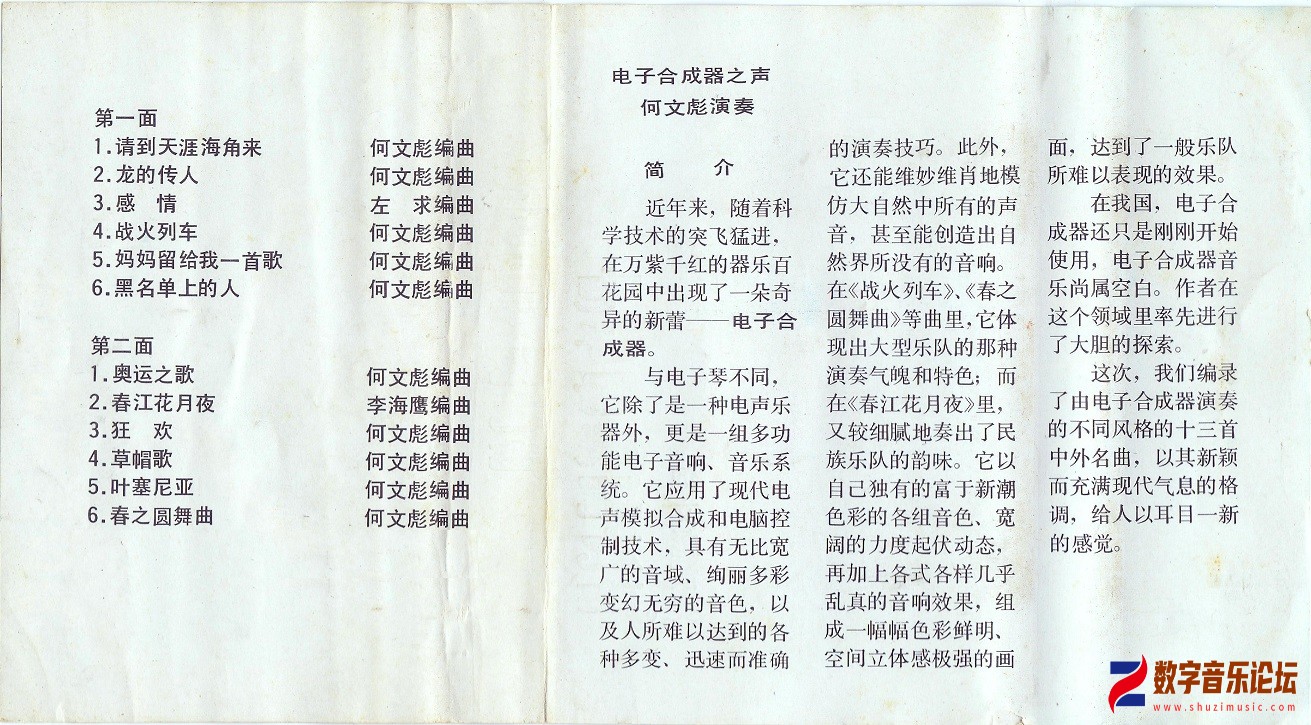 第一面
1.请到天涯海角来 何文彪编曲
2.龙的传人 何文彪编曲
3.感 情 左 求编曲
4.战火列车 何文彪编曲
5.妈妈留给我一首歌 何文彪编曲
6.黑名单上的人 何文彪编曲
第二面
1.奥运之歌 何文彪编曲
2.春江花月夜 李海鹰编曲
3.狂 欢 何文彪编曲
4.草帽歌 何文彪编曲
5.叶塞尼亚 何文彪编曲
6.春之圆舞曲 何文彪编曲
电子合成器之声
何文彪演奏
简 介
近年来，随着科
学技术的突飞猛进，
在万紫千红的器乐百
花园中出现了一朵奇
异的新蕾——电子合
成器。
与电子琴不同，
它除了是一种电声乐
器外，更是一组多功
能电子音响、音乐系
统。它应用了现代电
声模拟合成和电脑控
制技术，具有无比宽
广的音域、绚丽多彩
变幻无穷的音色，以
及人所难以达到的各
种多变、迅速而准确
的演奏技巧。此外，
它还能维妙维肖地模
仿大自然中所有的声
音，甚至能创造出自
然界所没有的音响。
在《战火列车》、《春之
圆舞曲》等曲里，它体
现出大型乐队的那种
演奏气魄和特色；而
在《春江花月夜》里，
又较细腻地奏出了民
族乐队的韵味。它以
自己独有的富于新潮
色彩的各组音色、宽
阔的力度起伏动态，
再加上各式各样几乎
乱真的音响效果，组
成一幅幅色彩鲜明、
空间立体感极强的画
面，达到了一般乐队
所难以表现的效果。
在我国，电子合
成器还只是刚刚开始
使用，电子合成器音
乐尚属空白。作者在
这个领域里率先进行
了大胆的探索。
这次，我们编录
了由电子合成器演奏
的不同风格的十三首
中外名曲，以其新颖
而充满现代气息的格
调，给人以耳目一新
的感觉。
数字音乐论坛
www.shuzimusic.com